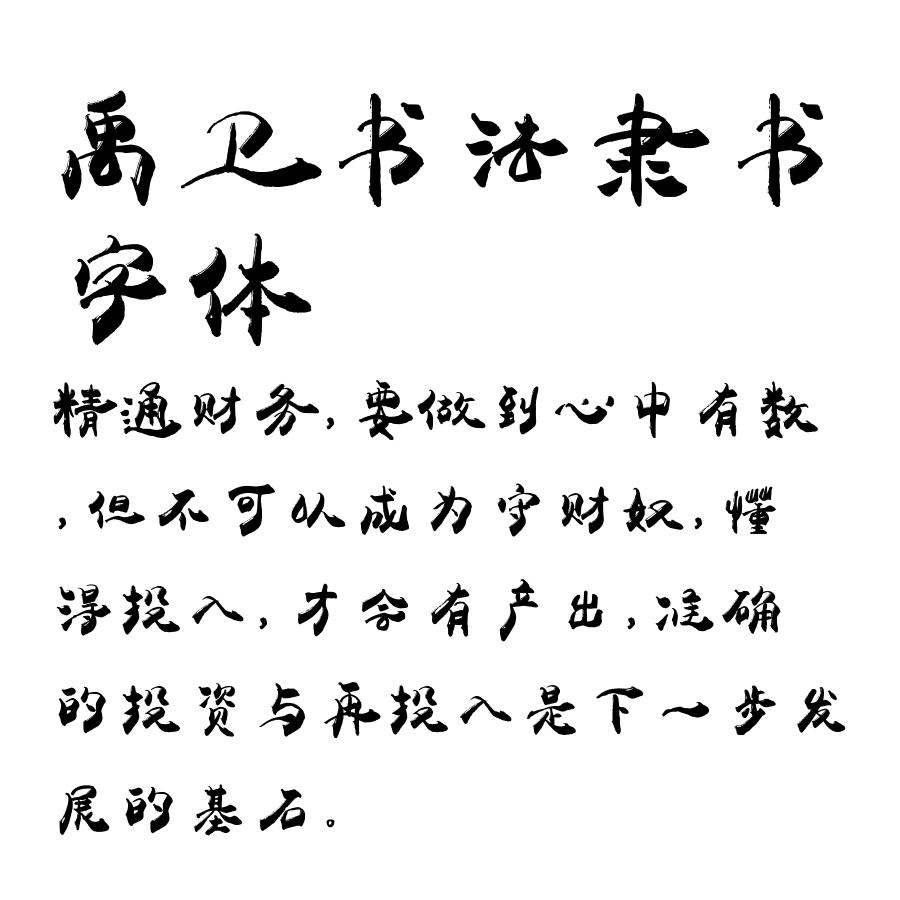 禹卫书法隶书
字体
精通财务,要做到心中有数
,但不可以成为守财奴,懂
得投入,才会有产出,准确
的投资与再投入是下一步发
展的基石。